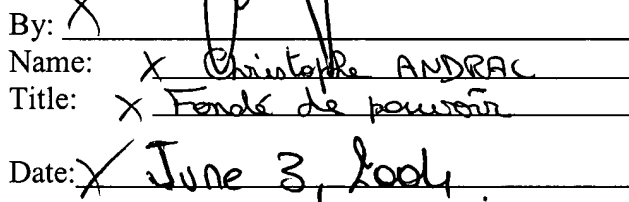 By: X
Name: X Christophe ANDRAC
Title: X Fondé de pouvoir
Date: X June 3, 2004